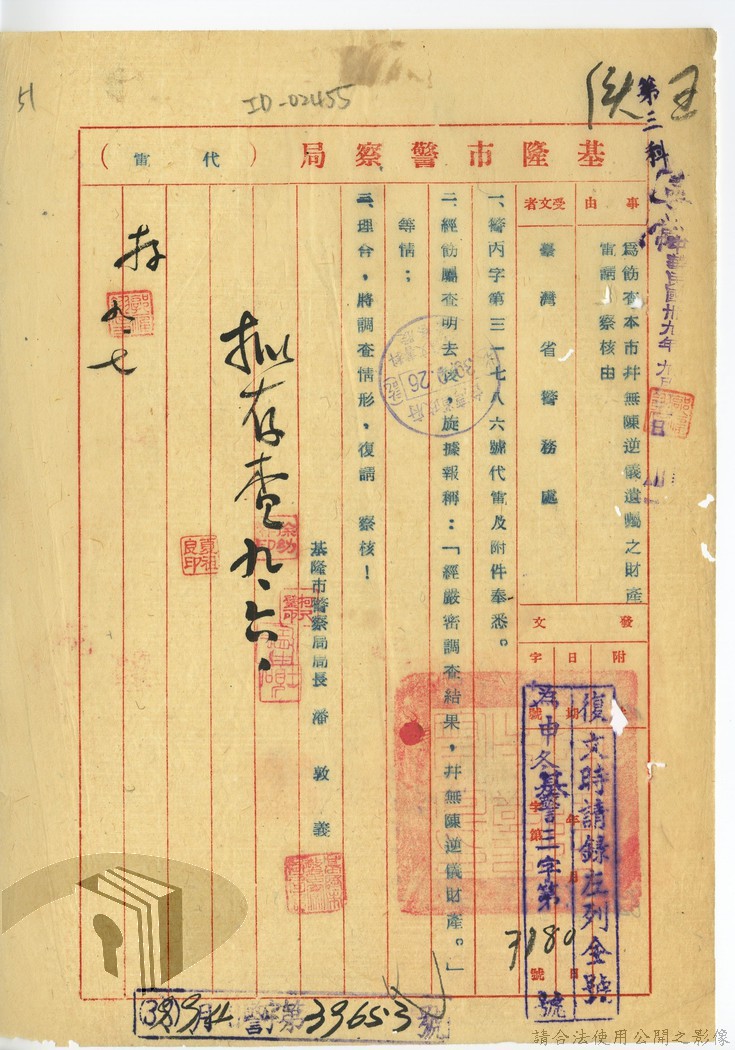 51
ID-02455
第三科
基隆市警察局（代電）
事由
為飭查本市并無陳逆儀遺囑之財產
電請　察核由
受文者
臺灣省警務處
發文
附
日期　年　月　日
字號　字第　號
復文時請錄左列全號
申冬基警三字第　號
3180
一、警內字第三一七八六號代電及附件奉悉。
二、經飭屬查明去後，旋據報稱：「經嚴密調查結果，并無陳逆儀財產。」
等情；
三、理合，將調查情形，復請　察核！
基隆市警察局局長　潘敦義
擬存查 九.六.
存
九.七
39653號
請合法使用公開之影像